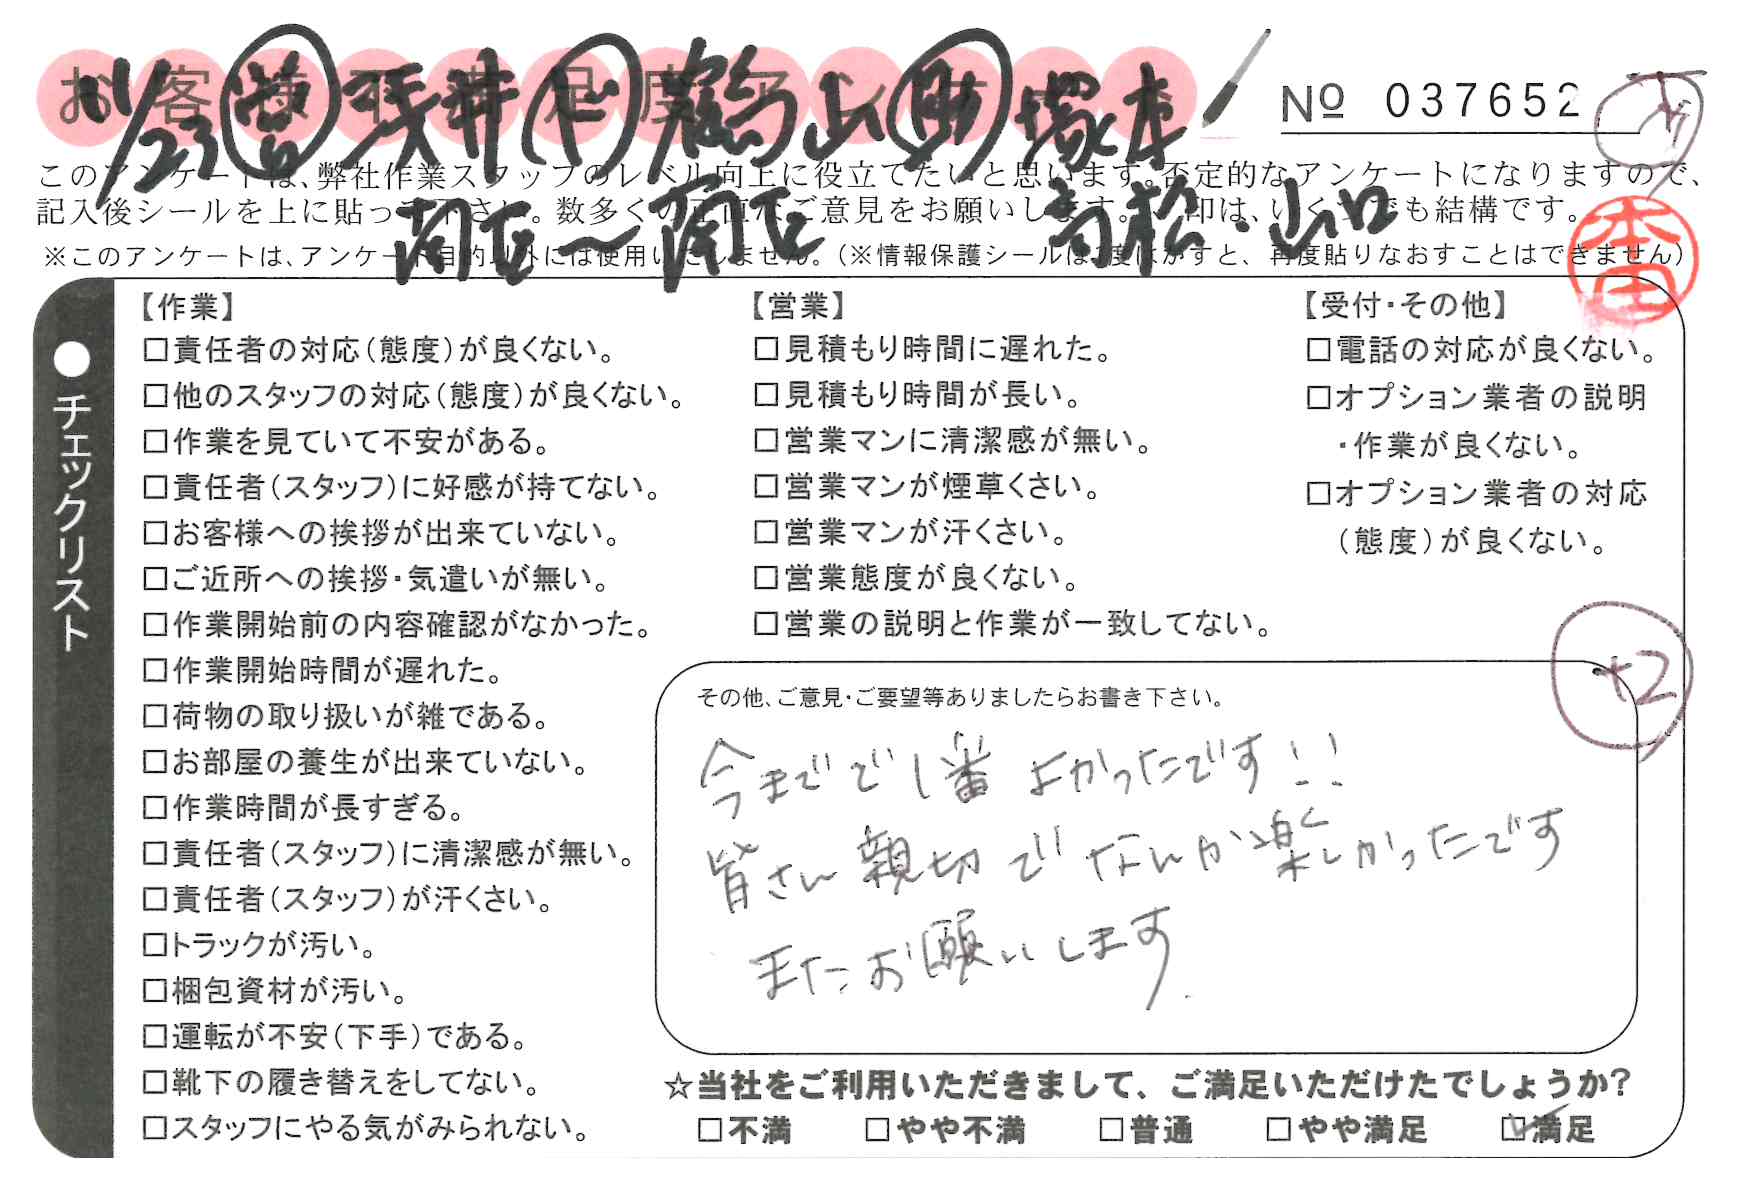 お客様不満足度アンケート
11/23 営 浅井 ド 鶴山 助 塚本
No 037652
このアンケートは、弊社作業スタッフのレベル向上に役立てたいと思います。否定的なアンケートになりますので、
記入後シールを上に貼って下さい。数多くの正直なご意見をお願いします。 印は、いくつでも結構です。
高松・山口
※このアンケートは、アンケート目的以外には使用いたしません。(※情報保護シールは1度はがすと、再度貼りなおすことはできません)
本田
●チェックリスト
【作業】
□責任者の対応(態度)が良くない。
□他のスタッフの対応(態度)が良くない。
□作業を見ていて不安がある。
□責任者(スタッフ)に好感が持てない。
□お客様への挨拶が出来ていない。
□ご近所への挨拶・気遣いが無い。
□作業開始前の内容確認がなかった。
□作業開始時間が遅れた。
□荷物の取り扱いが雑である。
□お部屋の養生が出来ていない。
□作業時間が長すぎる。
□責任者(スタッフ)に清潔感が無い。
□責任者(スタッフ)が汗くさい。
□トラックが汚い。
□梱包資材が汚い。
□運転が不安(下手)である。
□靴下の履き替えをしてない。
□スタッフにやる気がみられない。
【営業】
□見積もり時間に遅れた。
□見積もり時間が長い。
□営業マンに清潔感が無い。
□営業マンが煙草くさい。
□営業マンが汗くさい。
□営業態度が良くない。
□営業の説明と作業が一致してない。
【受付・その他】
□電話の対応が良くない。
□オプション業者の説明
・作業が良くない。
□オプション業者の対応
(態度)が良くない。
+2
その他、ご意見・ご要望等ありましたらお書き下さい。
今までで1番よかったです!!
皆さん親切でなんか楽しかったです
またお願いします.
☆当社をご利用いただきまして、ご満足いただけたでしょうか?
□不満 □やや不満 □普通 □やや満足 ☑満足